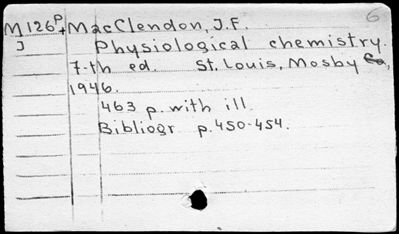 6
M126P+ MacClendon, J.F.
J Physiological chemistry.
7-th ed. St. Louis, Mosby Co,
1946.
463 p. with ill.
Bibliogr p. 450-454.